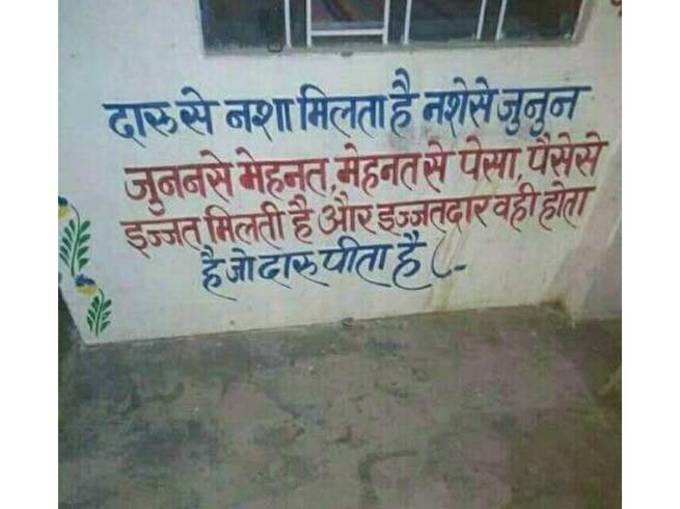 दारू से नशा मिलता है नशे से जुनुन
जुननसे मेहनत, मेहनत से पेसा, पैसे से
इज्जत मिलती है और इज्जतदार वही होता
है जो दारू पीता है